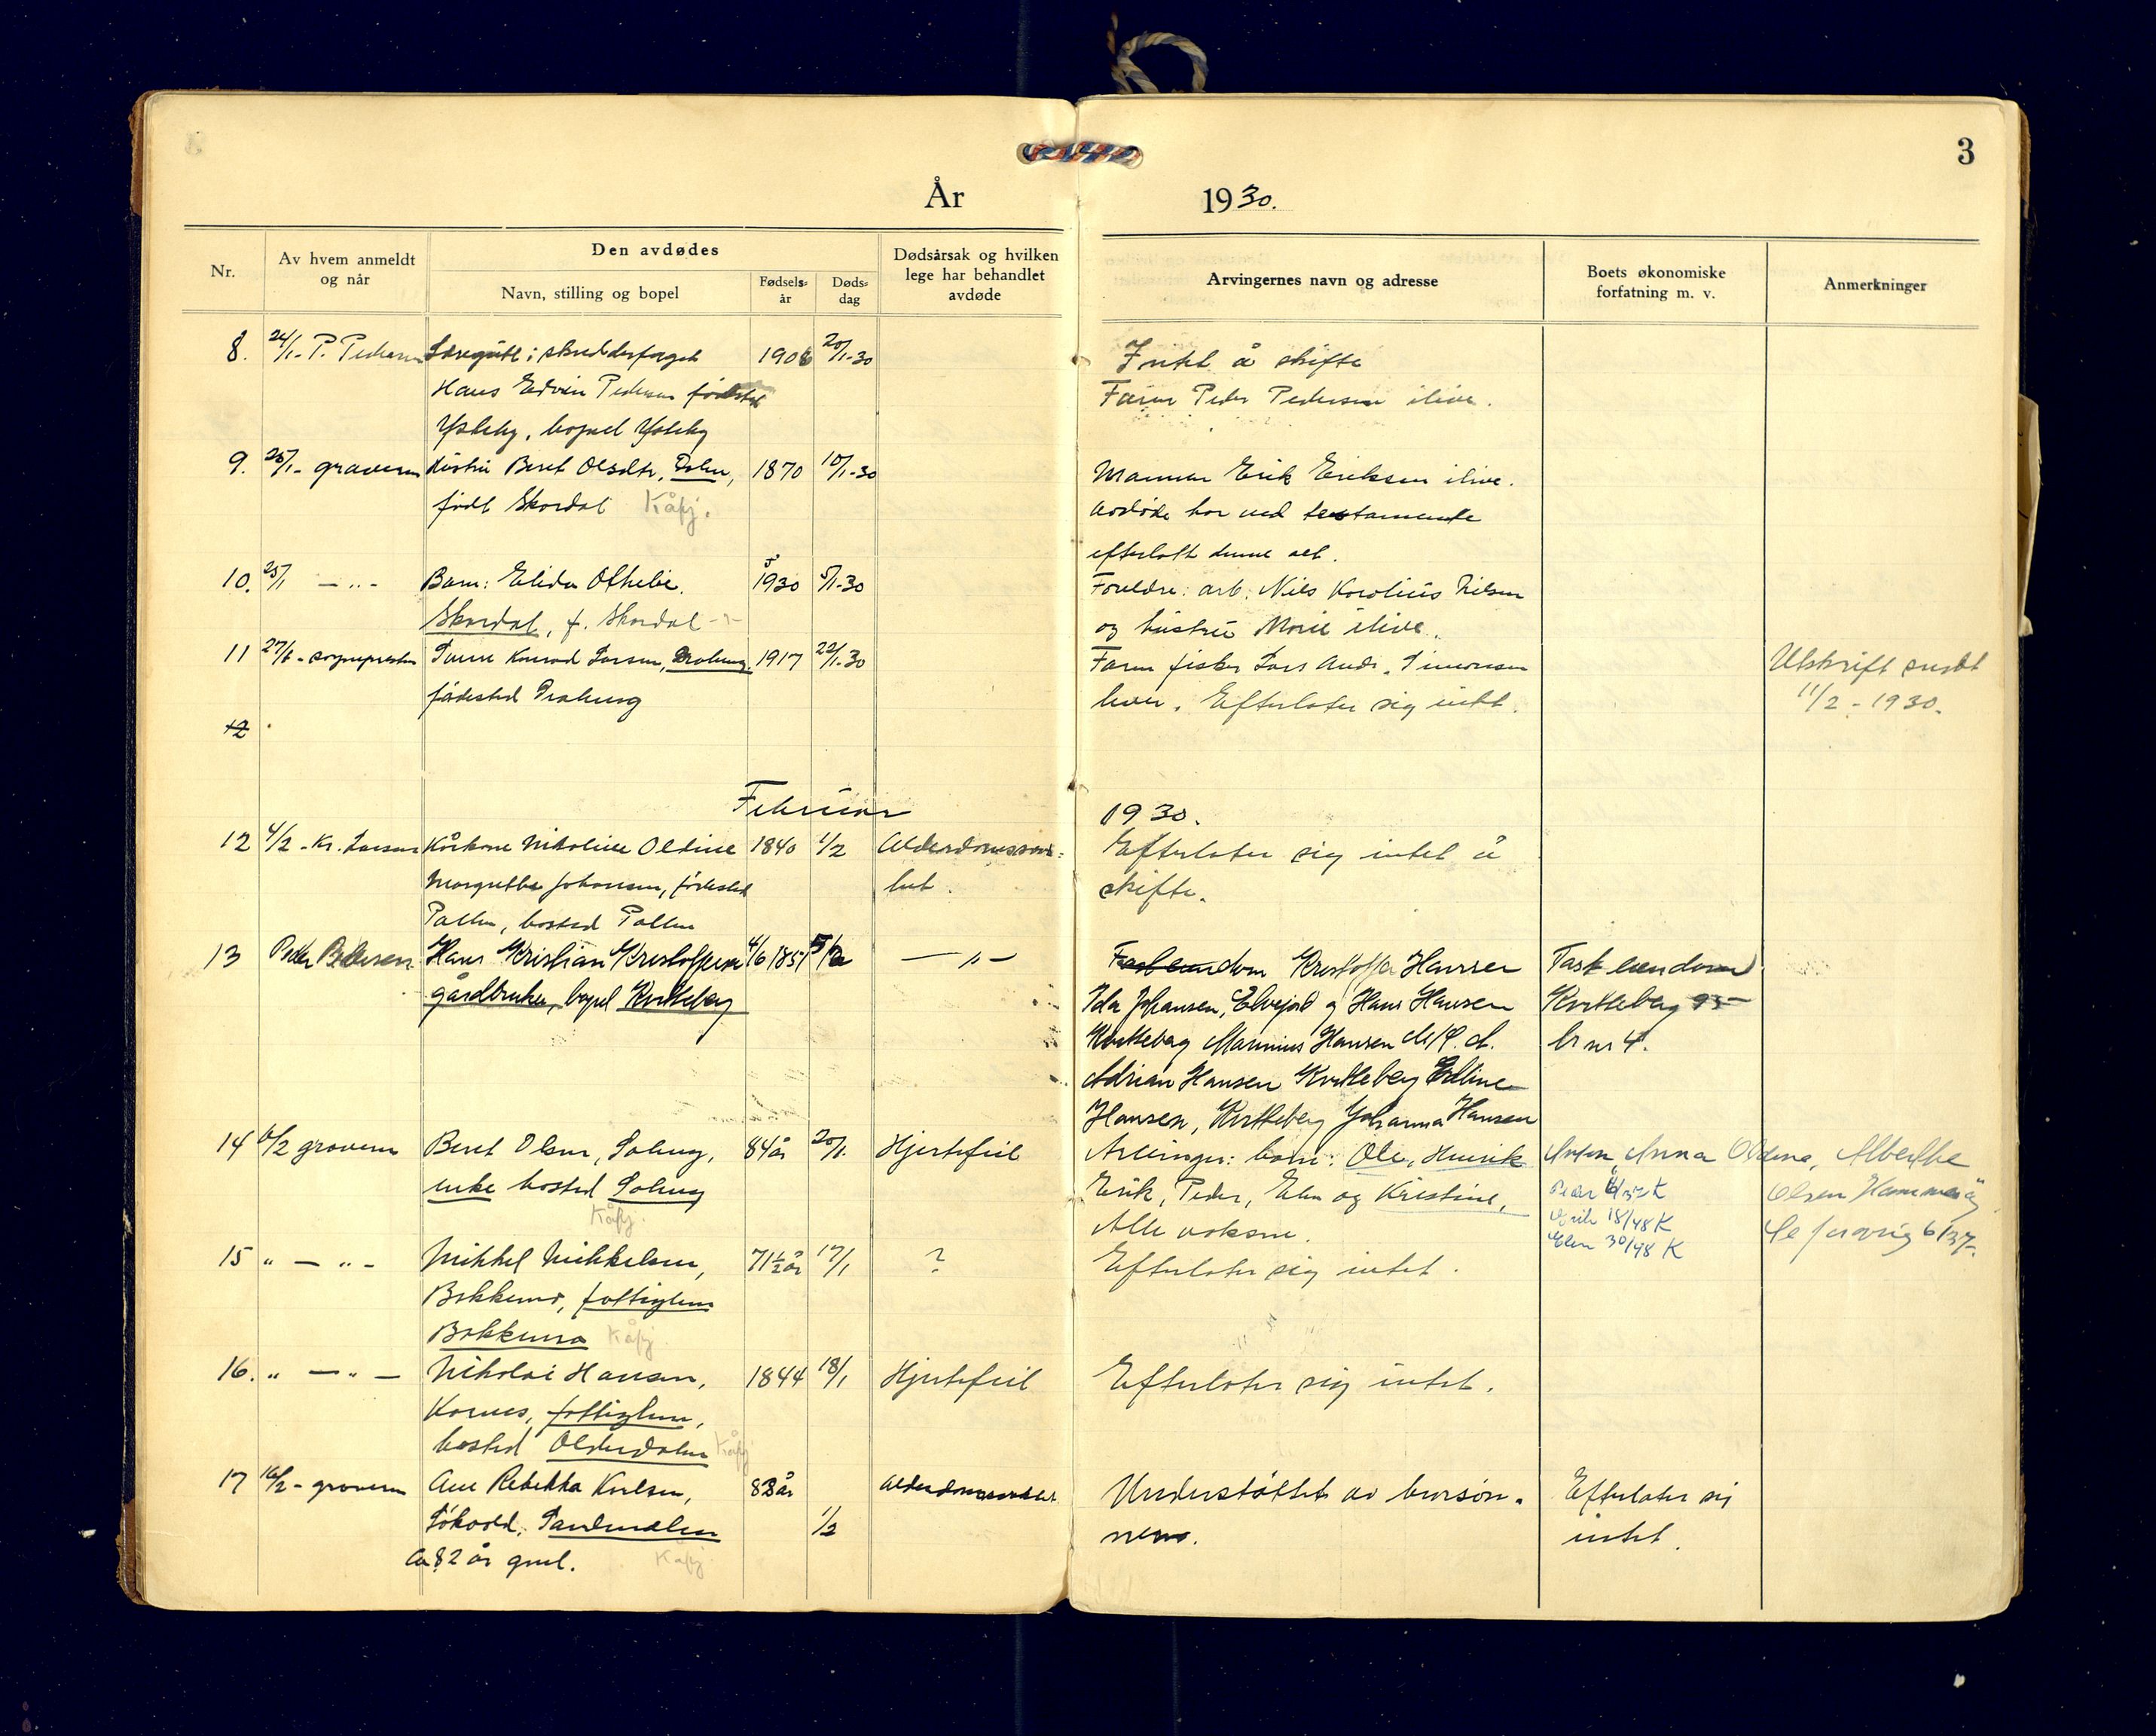 3
År 1930.
Nr.
Av hvem anmeldt og når
Den avdødes
Navn, stilling og bopel
Fødsels-år
Døds-dag
Dødsårsak og hvilken lege har behandlet avdøde
Arvingernes navn og adresse
Boets økonomiske forfatning m. v.
Anmerkninger
8. 24/1- P. Pedersen Læregutt i skredderfaget 1906 20/1-30 Intet å skifte
Hans Edvin Pedersen fødested Faren Peder Pedersen ilive.
, bopel
9. 25/1- graveren Hustru Beret Olsdtr. Dalen, 1870 10/1-30 Mannen Erik Eriksen ilive.
født Skardal Kåfj. Avdøde har ved testamente
efterlatt denne alt.
10. 25/1 — „ - Barn: Elida Othelie. 5/1930 5/1-30 Foreldre: arb. Nils Karolius Nilsen
Skardal, f. Skardal og hustru Marie ilive.
11 27/1- sognepresten Konrad Larsen, 1917 22/1-30 Faren fisker Lars Andr. Simonsen Utskrift sendt
fødested lever. Efterlater sig intet. 11/2 - 1930.
12
Februar 1930.
12 4/2 - Kr. Larsen Kårkone Nikoline Oldine 1840 1/2 Alderdomssvak- Efterlater sig intet å
Margrethe Johansen, fødested het. skifte.
Pollen, bosted Pollen
13 Peder Pedersen Hans Kristian Kristoffersen 4/6 1851 5/2 — „ — Kristoffer Hansen Fast eiendom
gårdbruker, bopel Kvitteberg Ida Johansen, Elvejord og Hans Hansen Kvitteberg
Kvitteberg Marinius Hansen br nr 4.
Adrian Hansen Kvitteberg Edline
Hansen, Kvitteberg Johanna Hansen
14 6/2 graveren Beret Olsen, 84 år 20/1. Hjertefeil Arvinger: barn: Ole, Henrik Anton, Anna Oldena, Alberthe
enke bosted Erik, Peder, Elen og Kristine. Peder K Olsen
Kåfj. Alle voksne. Erik 18/48 K
Elen 30/48 K
15 „ — „ - Mikkel Mikkelsen, 71½ år 17/1 ? Efterlater sig intet.
Bakkemo, fattiglem
Bakkemo Kåfj.
16. „ — „ — Nikolai Hansen, 1844 18/1 Hjertefeil Efterlater sig intet.
Kornes, fattiglem,
bosted Olderdalen Kåfj
17 16/2 - graveren Ane Rebekka Karlsen, 83 år Alderdomssvakhet Understøttet av Efterlater sig
Løkvold. 1/2 nene. intet.
Ca 82 år gml. Kåfj